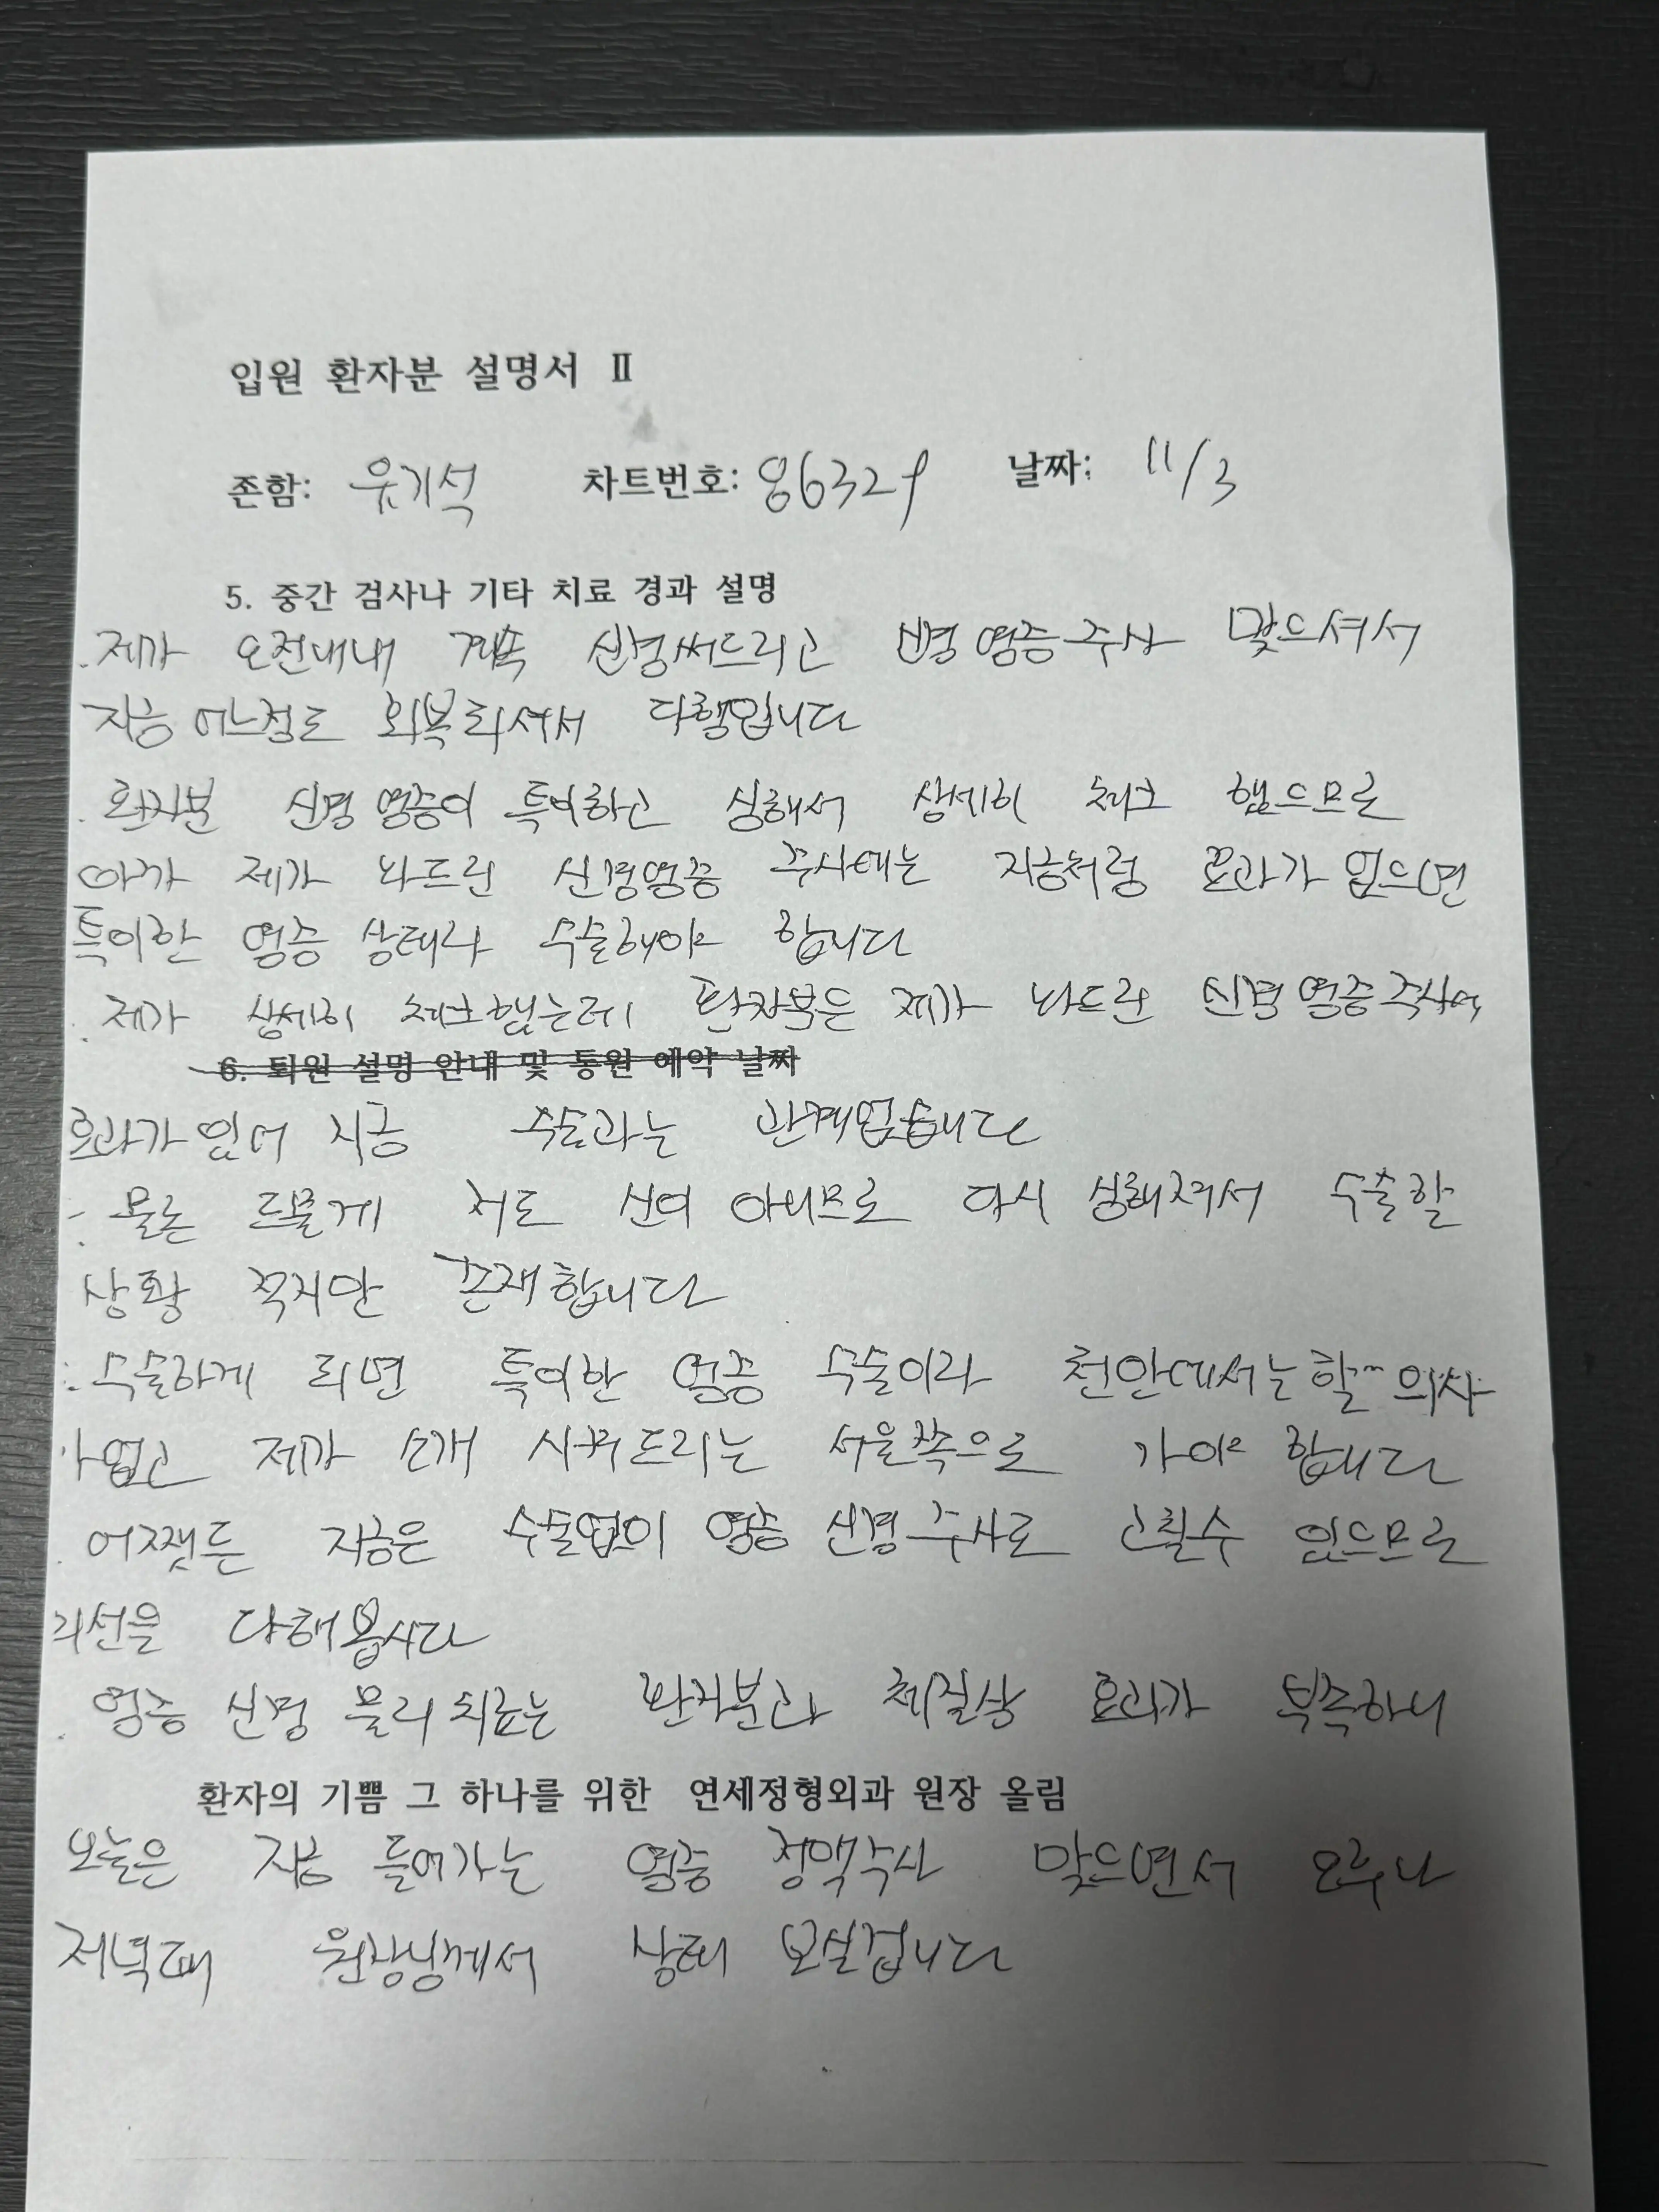 입원 환자분 설명서 Ⅱ
존함: 유기석 차트번호: 86329 날짜: 11/3
5. 중간 검사나 기타 치료 경과 설명
. 제가 오전내내 계속 신경써드리고 신경 염증 주사 맞으셔서
지금 어느정도 회복되셔서 다행입니다
. 환자분 신경 염증이 특이하고 심해서 상세히 체크 했으므로
아까 제가 놔드린 신경염증 주사에는 지금처럼 효과가 없으면
특이한 염증 상태라 수술해야 합니다
. 제가 상세히 체크했는데 환자분은 제가 놔드린 신경 염증 주사에
6. 퇴원 설명 안내 및 통원 예약 날짜
효과가 있어 지금 수술과는 관계없습니다
: 물론 드물게 저도 신이 아니므로 다시 심해져서 수술할
상황 적지만 존재합니다
: 수술하게 되면 특이한 염증 수술이라 천안에서는 할 의사
가 없고 제가 소개 시켜드리는 서울쪽으로 가야 합니다
. 어쨌든 지금은 수술없이 염증 신경 주사로 고칠수 있으므로
최선을 다해봅시다
. 염증 신경 물리치료는 환자분과 체질상 효과가 부족하니
환자의 기쁨 그 하나를 위한 연세정형외과 원장 올림
오늘은 지금 들어가는 염증 정맥주사 맞으면서 오후나
저녁때 원장님께서 상태 보실겁니다